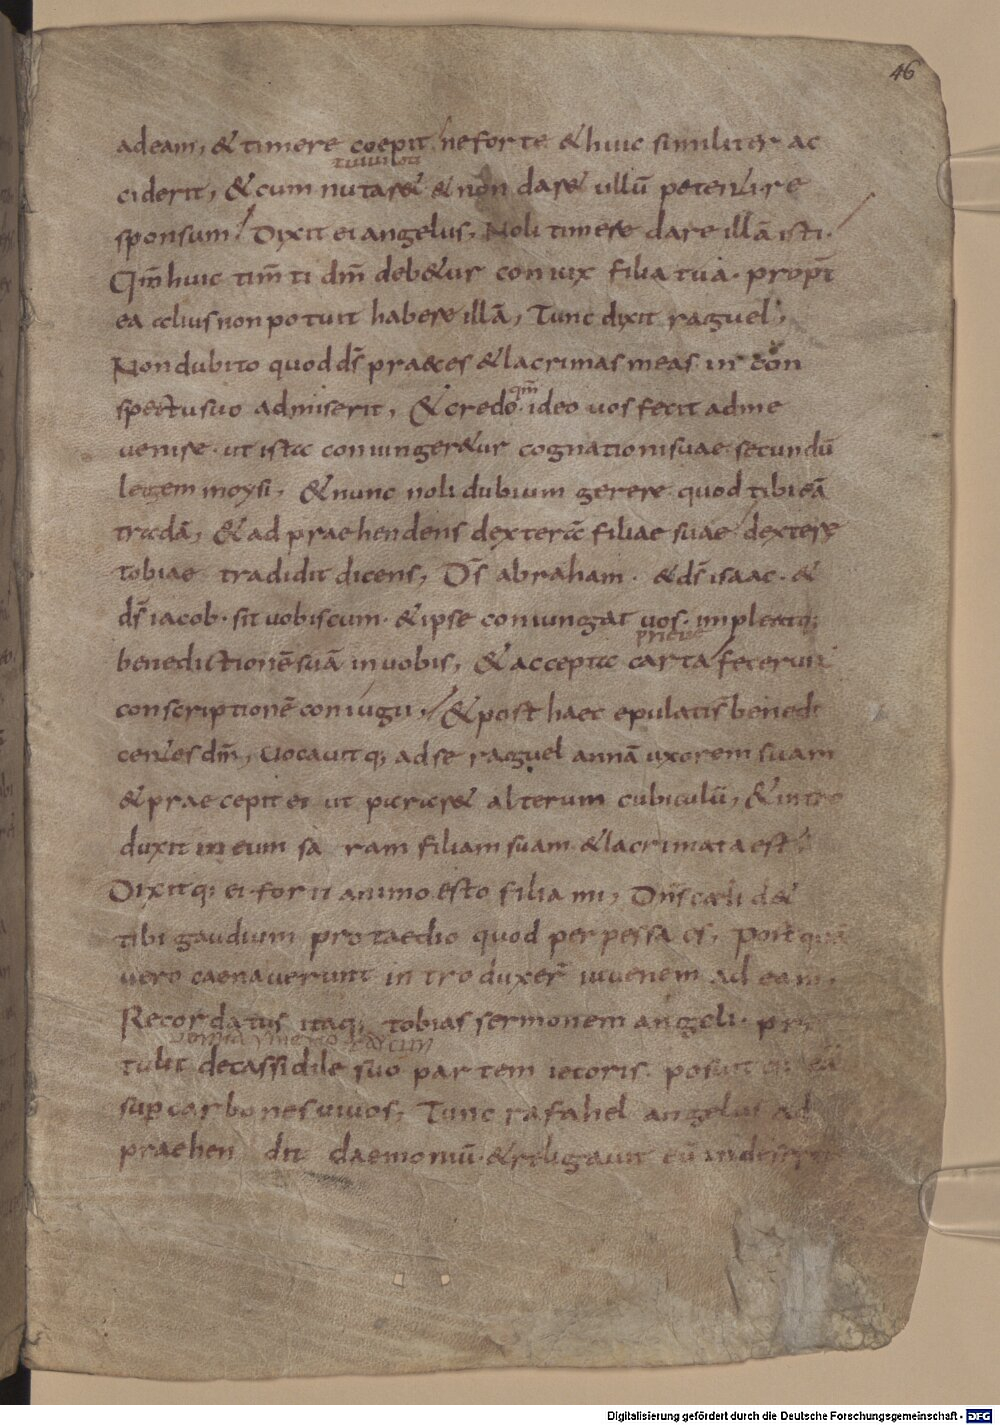 46
ad eam, & timere coepit ne forte & huic similiter ac
ciderit, & cum nutar& & non dar& ullū petenti re
sponsum. Dixit ei angelus, Noli timere dare illā isti.
Qm̄ huic tim̄ti dm̄ deb&ur coniux filia tua. propt̄
ea alius non potuit habere illā, Tunc dixit raguel,
Non dubito quod ds̄ praeces & lacrimas meas in con
spectu suo admiserit, & credo qm̄ ideo vos fecit ad me
venire. ut ista coniunger&ur cognationi suae secundū
legem moysi, & nunc noli dubium gerere quod tibi eā
tradā, & adpraehendens dexterā filiae suae dextere
tobiae tradidit dicens, Ds̄ abraham. & ds̄ isaac. &
ds̄ iacob. sit vobiscum. & ipse coniungat vos. impleatq;
benedictionē suā in vobis, & accepta carta fecerunt
conscriptionē coniugii, & post haec epulati s̄ benedi
centes dm̄, Vocavitq; ad se raguel annā uxorem suam
& praecepit ei ut praepárar& alterum cubiculū, & intro
duxit in eum saram filiam suam & lacrimata est
Dixitq; ei forti animo esto filia mi, Dn̄s caeli d&
tibi gaudium pro taedio quod perpessa es, Postquā
vero caenaverunt introduxer̄ iuvenem ad eam,
Recordatus itaq; tobias sermonem angeli.
tulit de cassidile suo partem iecoris. posuitq; eā
sup carbones vivos, Tunc rafahel angelus ad
praehendit daemoniū. & religavit eū in deserto